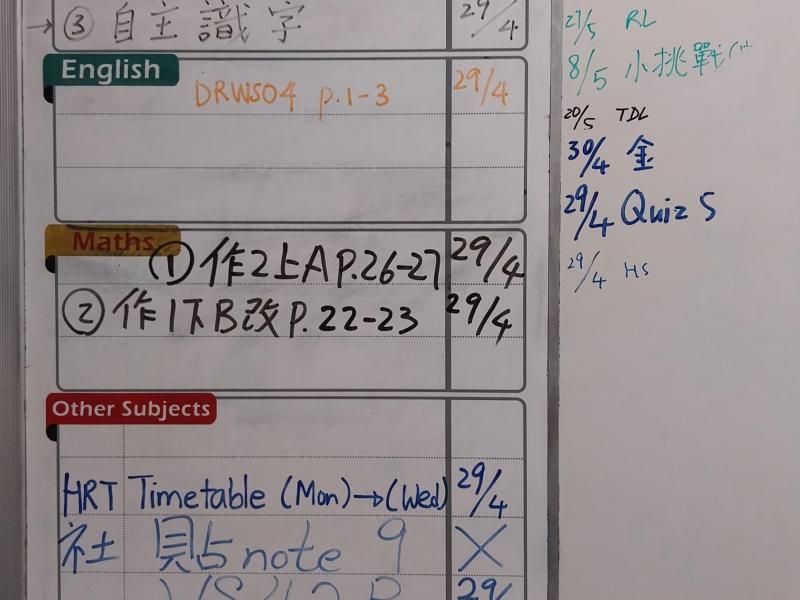 → ③ 自主識字 29/4
English
DRWS04 p.1-3 29/4
Maths
① 作2上A P.26-27 29/4
② 作1下B改 P.22-23 29/4
Other Subjects
HRT Timetable (Mon)→(Wed) 29/4
社 貼note 9 X
29/
27/5 RL
8/5 小挑戰
20/5 TDL
30/4 金
29/4 Quiz 5
29/4 HS